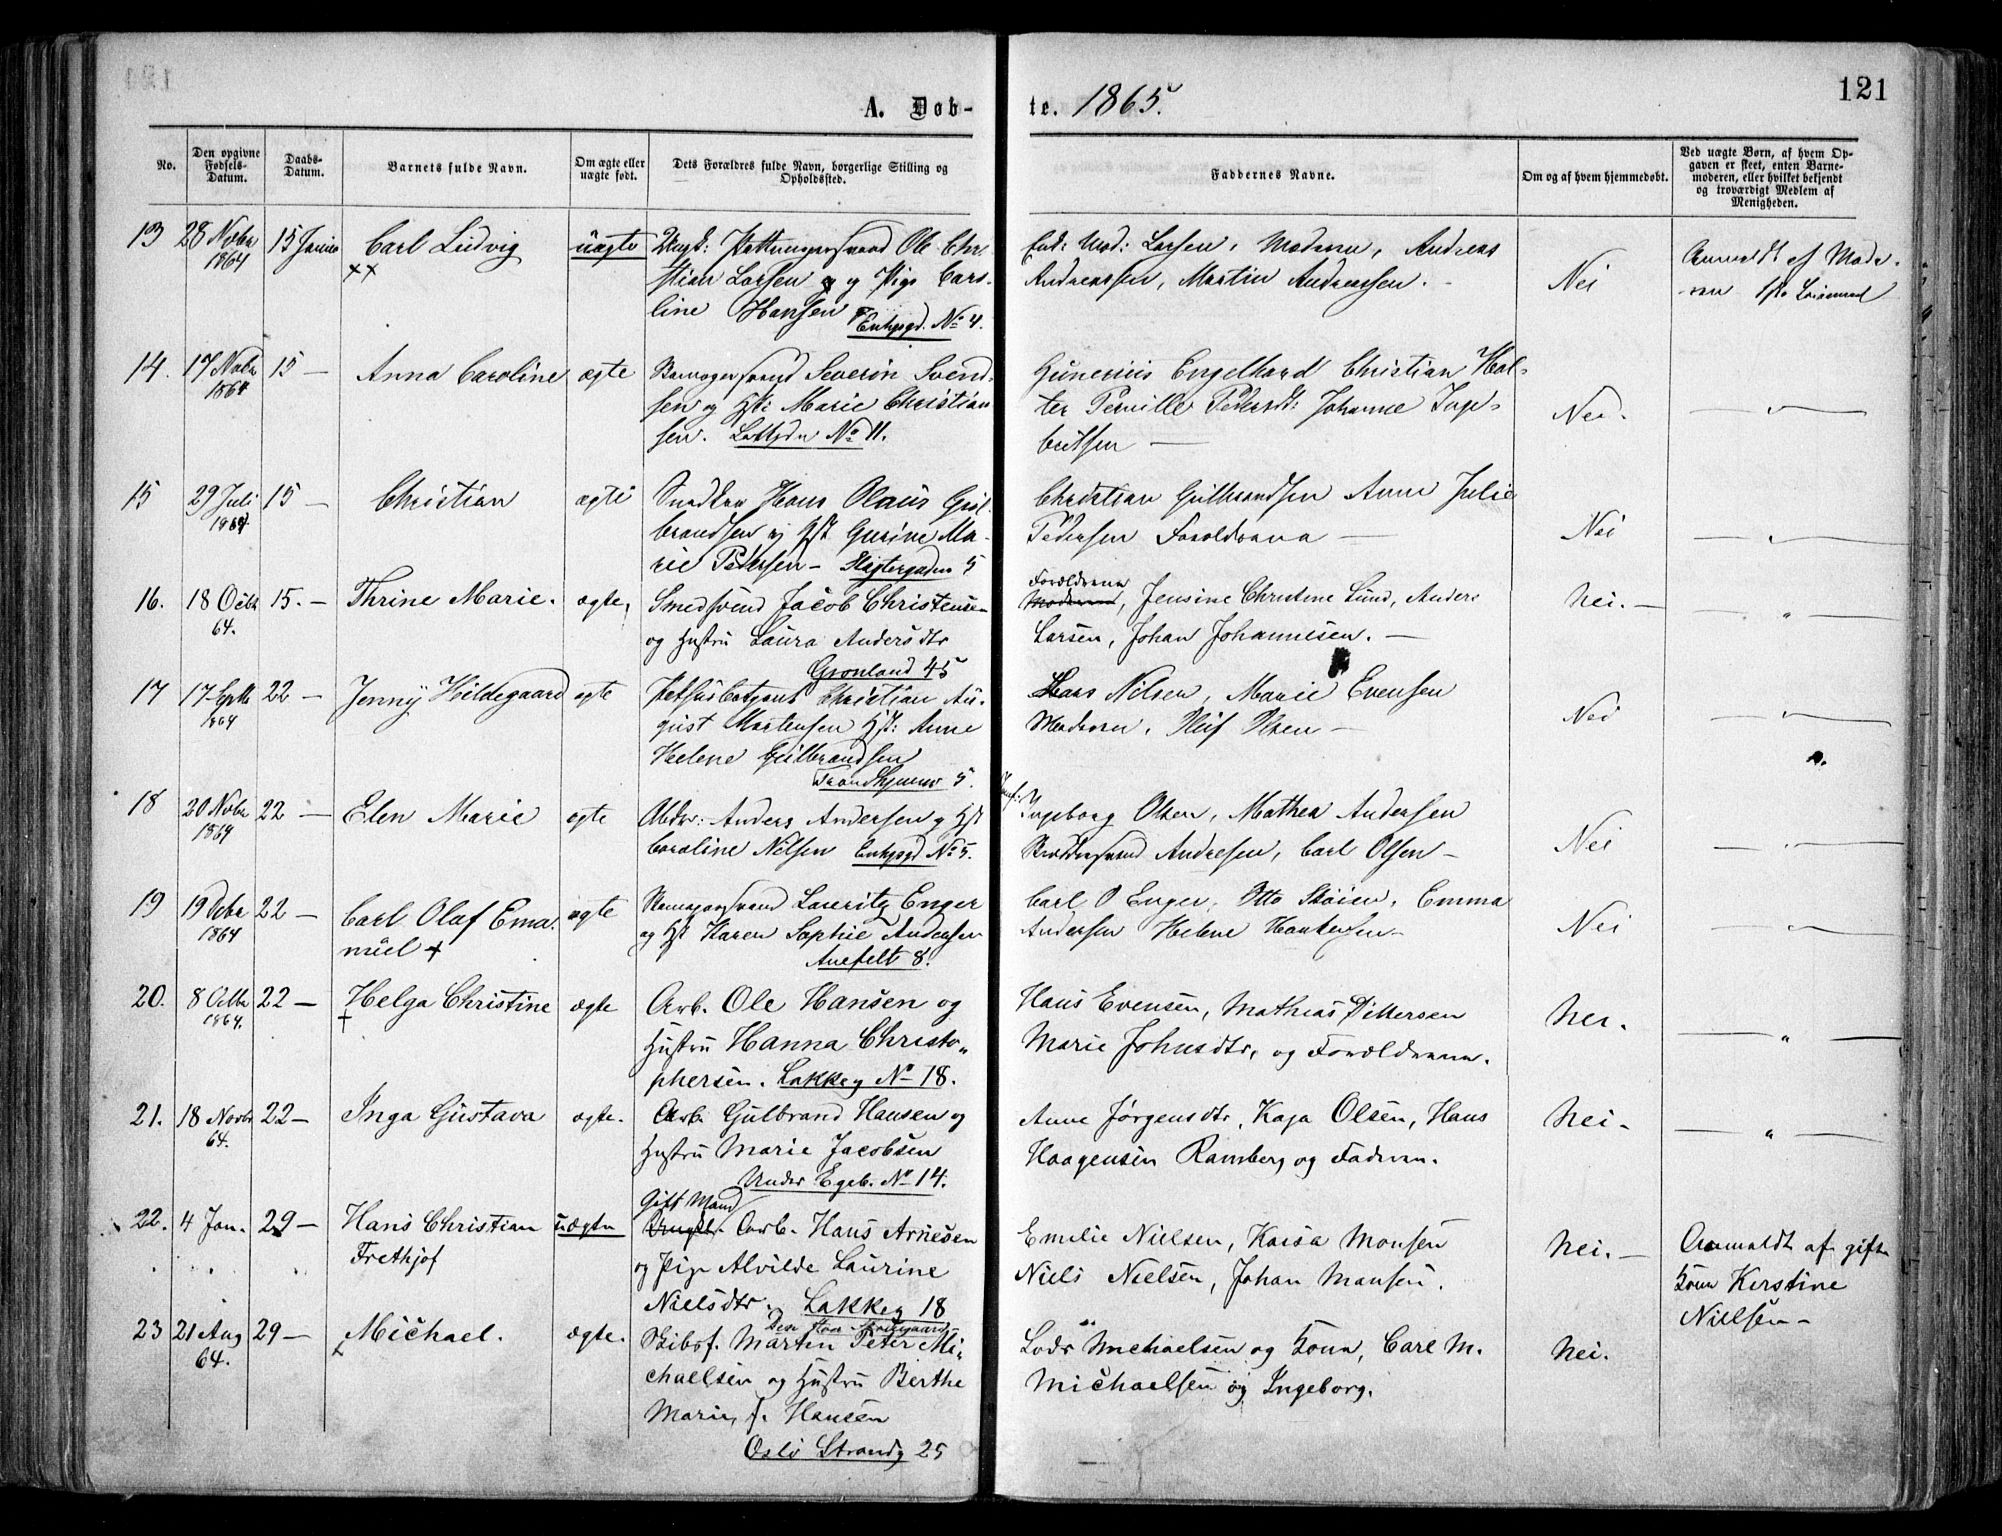 121
A. Døb-
te. 1865.
No.
Den opgivne Fødsels-Datum.
Daabs-Datum.
Barnets fulde Navn.
Om ægte eller uægte født.
Dets Forældres fulde Navn, borgerlige Stilling og Opholdssted.
Faddernes Navne.
Om og af hvem hjemmedøbt.
Ved uægte Børn, af hvem Op-
gaven er skeet, enten Barne-
moderen, eller hvilket bekjendt
og troværdigt Medlem af
Menigheden.
13 28 Novbr 1864 15 Janua Carl Ludvig uægte Ungk: Ole Chri-
stian Larsen og Pige Caro-
line Hansen Enkegd. No 4.
Larsen, Moderen, Andreas
Andreassen, Martin Andreassen.
Nei
Anmeldt af Mode-
ren
14. 17 Novbr 1864 15 — Anna Caroline ægte Severin Svend-
sen og Hst: Marie Christian
sen. Lakkegdn No 11.
Gunerius Engelhard Christian Hal-
ter Pernille Pedersdt: Johanne Inge-
britsen —
Nei.
— " —
15 29 Juli 1864 15 — Christian ægte Snedker Hans Olaus Gul-
brandsen og Hst Gurine Ma-
rie Pedersen — Slagtergaden 5
Christian Gulbrandsen Anne Julie
Pedersen Forældrene —
Nei
— " —
16. 18 Octbr 64. 15. — Thrine Marie. ægte, Smedsvend Jacob Christensen
og Hustru Laura Andersdtr
Grønland 45
Forældrene
Moderen, Jensine Christine Lund, Anders
Larsen, Johan Johannesen. —
Nei. —
"
17 17 Septb 1864 22 — Jenny Hildegaard ægte Christian Au-
gust Mortensen Hst: Anne
Helene Gulbrandsen
5.
Lars Nilsen, Marie Evensen
Moderen, Olsen —
Nei
— " —
18 20 Novbr 1864 22 — Elen Marie ægte Abdr: Anders Andersen og Hst
Caroline Nilsen Enkegd No 5.
Ingeborg Olsen, Mathea Andersen
Andresen, Carl Olsen —
Nei
— " —
19 19 Decbr 1864 22 — Carl Olaf Ema-
nuel + ægte Lauritz Enger
og Hst Karen Sophie Andersen
8.
Carl O Enger, Otto Skøien, Emma
Andersen Helene —
Nei
— " —
20. 8 Octbr 1864. 22 — Helga Christine
† ægte Arb. Ole Hansen og
Hustru Hanna Christo-
phersen. Lakkeg No 18.
Hans Evensen, Mathias Pettersen
Marie Johnsdtr, og Forældrene.
Nei.
— " —
21. 18 Novbr 64. 22 — Inga Gustava ægte. Arb. Gulbrand Hansen og
Hustru Marie Jacobsen
Under Egeb. No 14.
Anne Jørgensdtr, Kaja Olsen, Hans
Haagensen Ramberg og Faderen.
Nei.
— " —
22. 4 Jan. 29 — Hans Christian
Frethjof uægte Gift Mand
Ungkl. Arb. Hans Arnesen
og Pige Alvilde Laurine
Nielsdtr. Lakkeg 18
Emelie Nielsen, Kaisa Monsen
Niels Nielsen, Johan Monsen.
Nei. —
Anmeldt af gifte
Kone Kerstine
Nielsen —
23 21 Aug 64. 29 — Michael. ægte. Skibsf. Martin Peter Mi-
chaelsen og Hustru Berthe
Marie, f. Hansen
Oslo Strandg 25
Lods Michaelsen og Kone, Carl M.
Michaelsen og Ingeborg.
Nei.